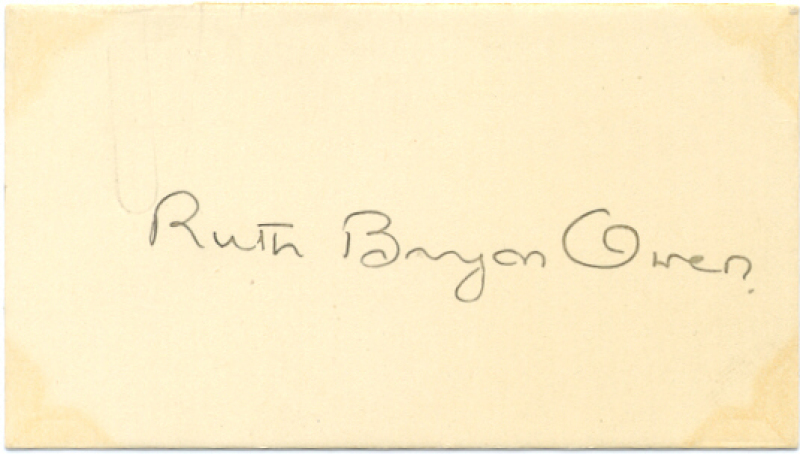 Ruth Bryan Owen.